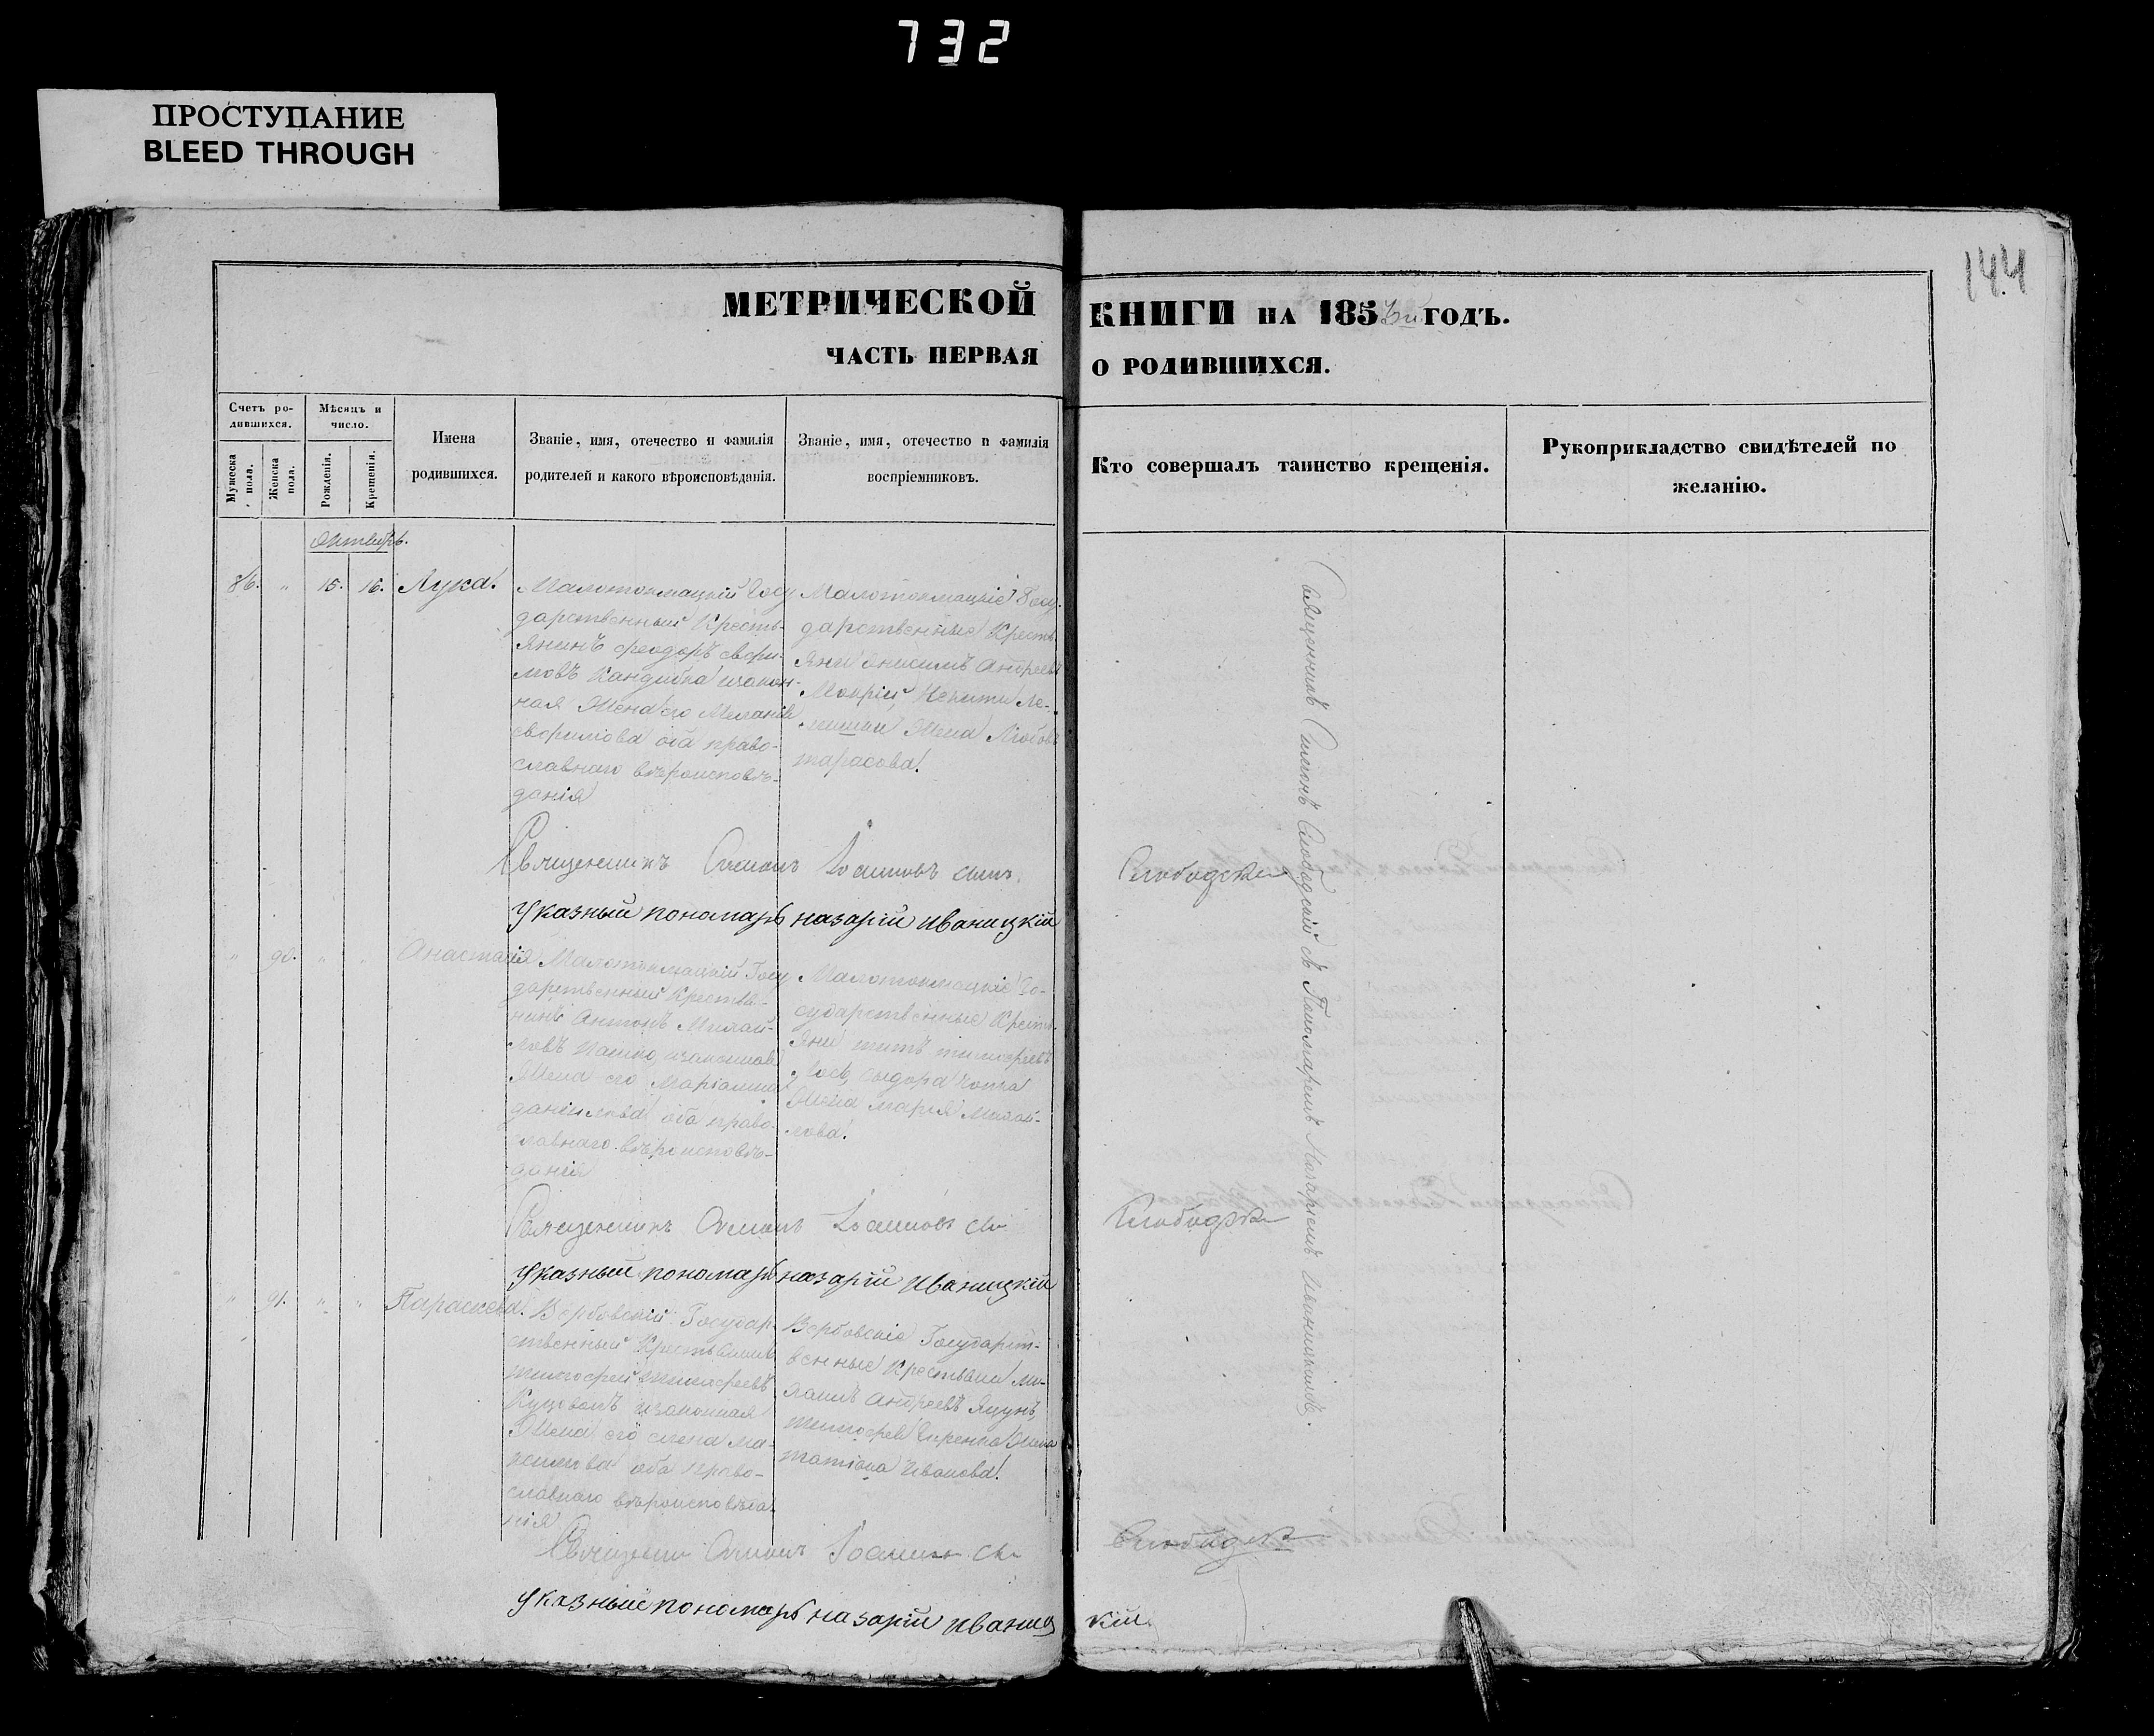 732
ПРОСТУПАНИЕ
BLEED THROUGH
144
МЕТРИЧЕСКОЙ КНИГИ НА 185 ГОДЪ.
ЧАСТЬ ПЕРВАЯ О РОДИВШИХСЯ.
Счетъ ро-
дившихся.
Мужеска
пола.
Женска
пола.
Мѣсяцъ и
число.
Рожденія.
Крещенія.
Имена
родившихся.
Званіе, имя, отечество и фамилія
родителей и какого вѣроисповѣданія.
Званіе, имя, отечество и фамилія
воспріемниковъ.
Кто совершалъ таинство крещенія.
Рукоприкладство свидѣтелей по
желанію.
Октябрь.
86. " 15. 16. Лука.
Малотокмацкій Госу
дарственный Кресть-
янинъ Феодоръ Ефи-
мовъ Кандиба изакон-
ная Жена его Меланія
Ефимова оба право-
славнаго вѣроисповѣ-
данія
Малотокмацкіе Госу
дарственные Кресть
яни Онисимъ Андреевъ
Мокрій, Никити Ле-
Жена Любовь
тарасова.
Священникъ Симонъ Іоанновъ сынъ Слободскій
Указный пономарь назарій иваницкій
" 90. " " Анастасія
Малотокмацкій Госу
дарственный Крестья-
нинъ Антонъ Михай-
ловъ изаконная
Жена его Маріанна
данілова оба право-
славнаго вѣроисповѣ-
данія
Малотокмацкіе Го-
сударственные Кресть-
яни титъ тимофеевъ
сидора
Жена марія Михай-
лова.
Священникъ Симонъ Іоанновъ Слободскій
Указный пономарь назарій иваницкій
" 91. " " Параскева.
Вербовскій Государ-
ственный Крестьянинъ
тимофей тимофеевъ
изаконная
Жена его елена ма-
ксимова оба право-
славнаго вѣроисповѣда-
нія
Вербовскіе Государст-
венные Крестьяни ми-
Андреевъ Яцунъ,
тимофея Жена
татіана Иванова.
Симонъ Слободскій
Указный пономарь назарій иваницкій
Священникъ Симонъ Слободскій съ Пономаремъ Назаріемъ Иваницкимъ.